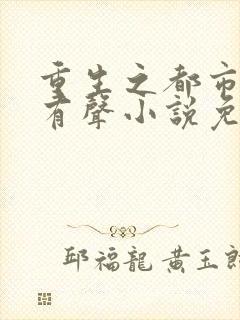 重生之都市
有聲小說免
邱福龍 黃玉郎